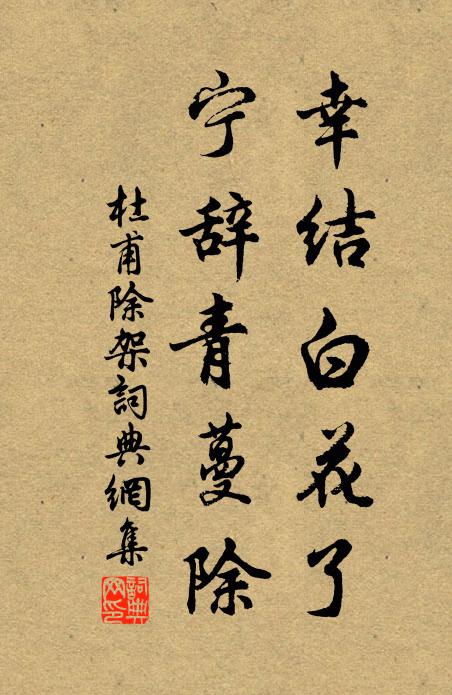 幸结白花了
宁辞青蔓除
杜甫除架詞典網集
詞典网印